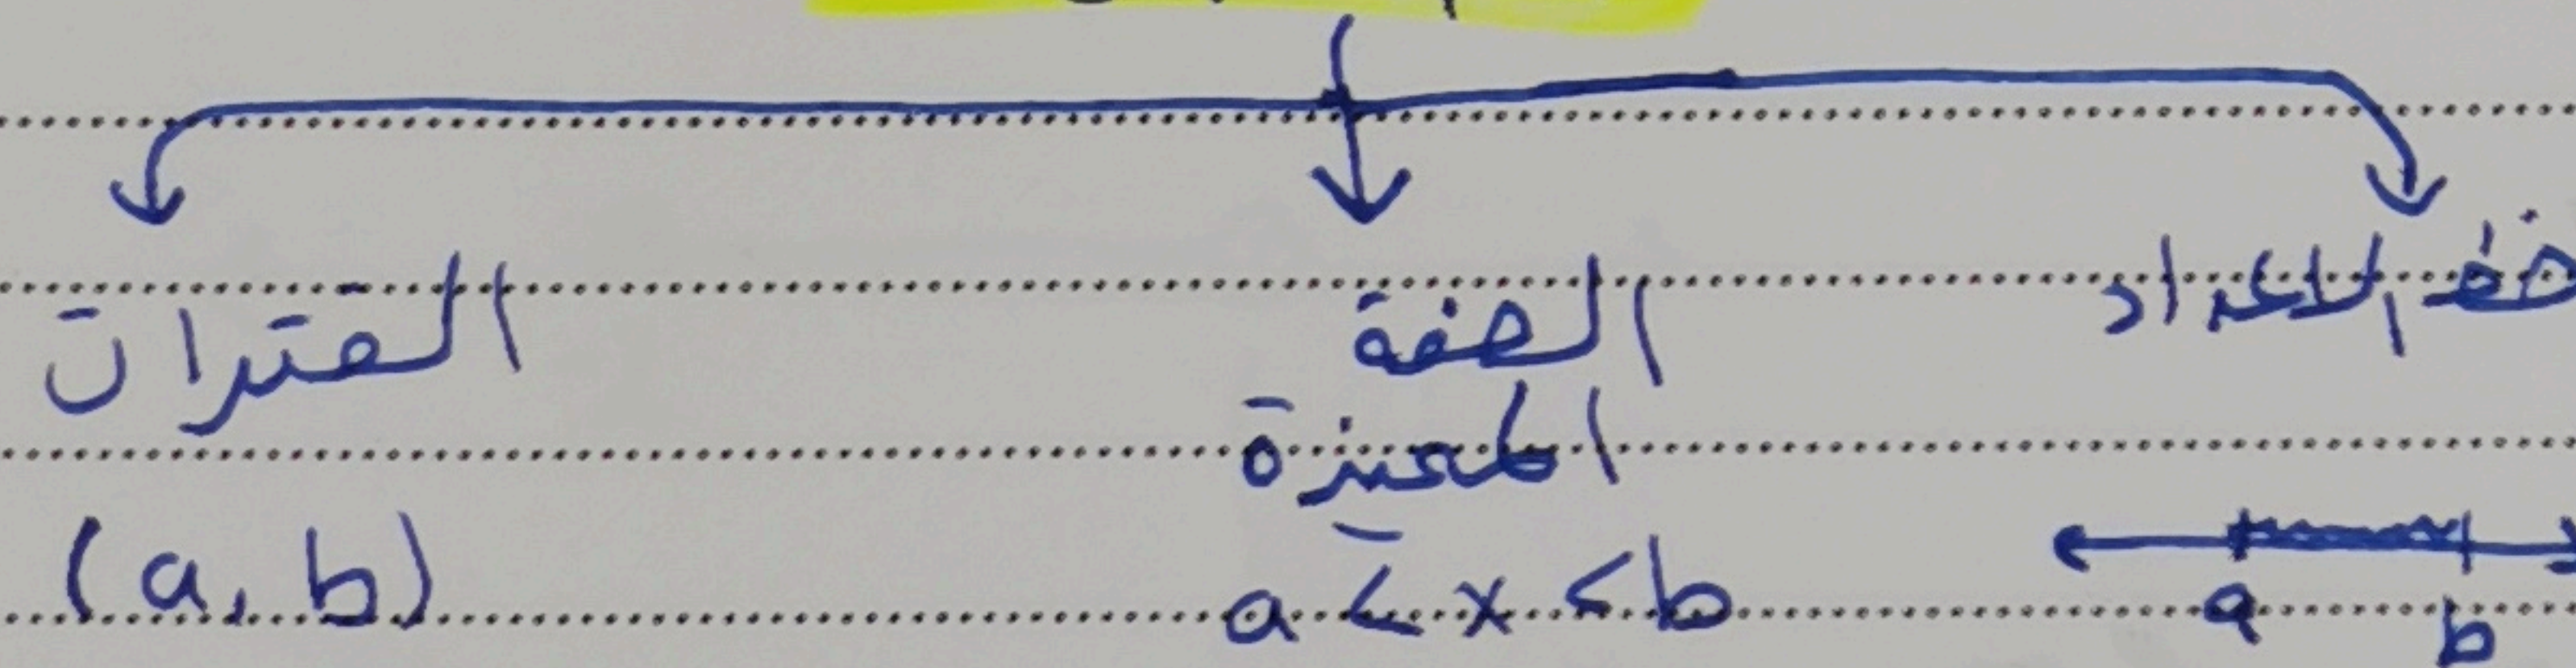 خط الاعداد
الصفة
المميزة
الفترات
a b
a < x < b
(a, b)